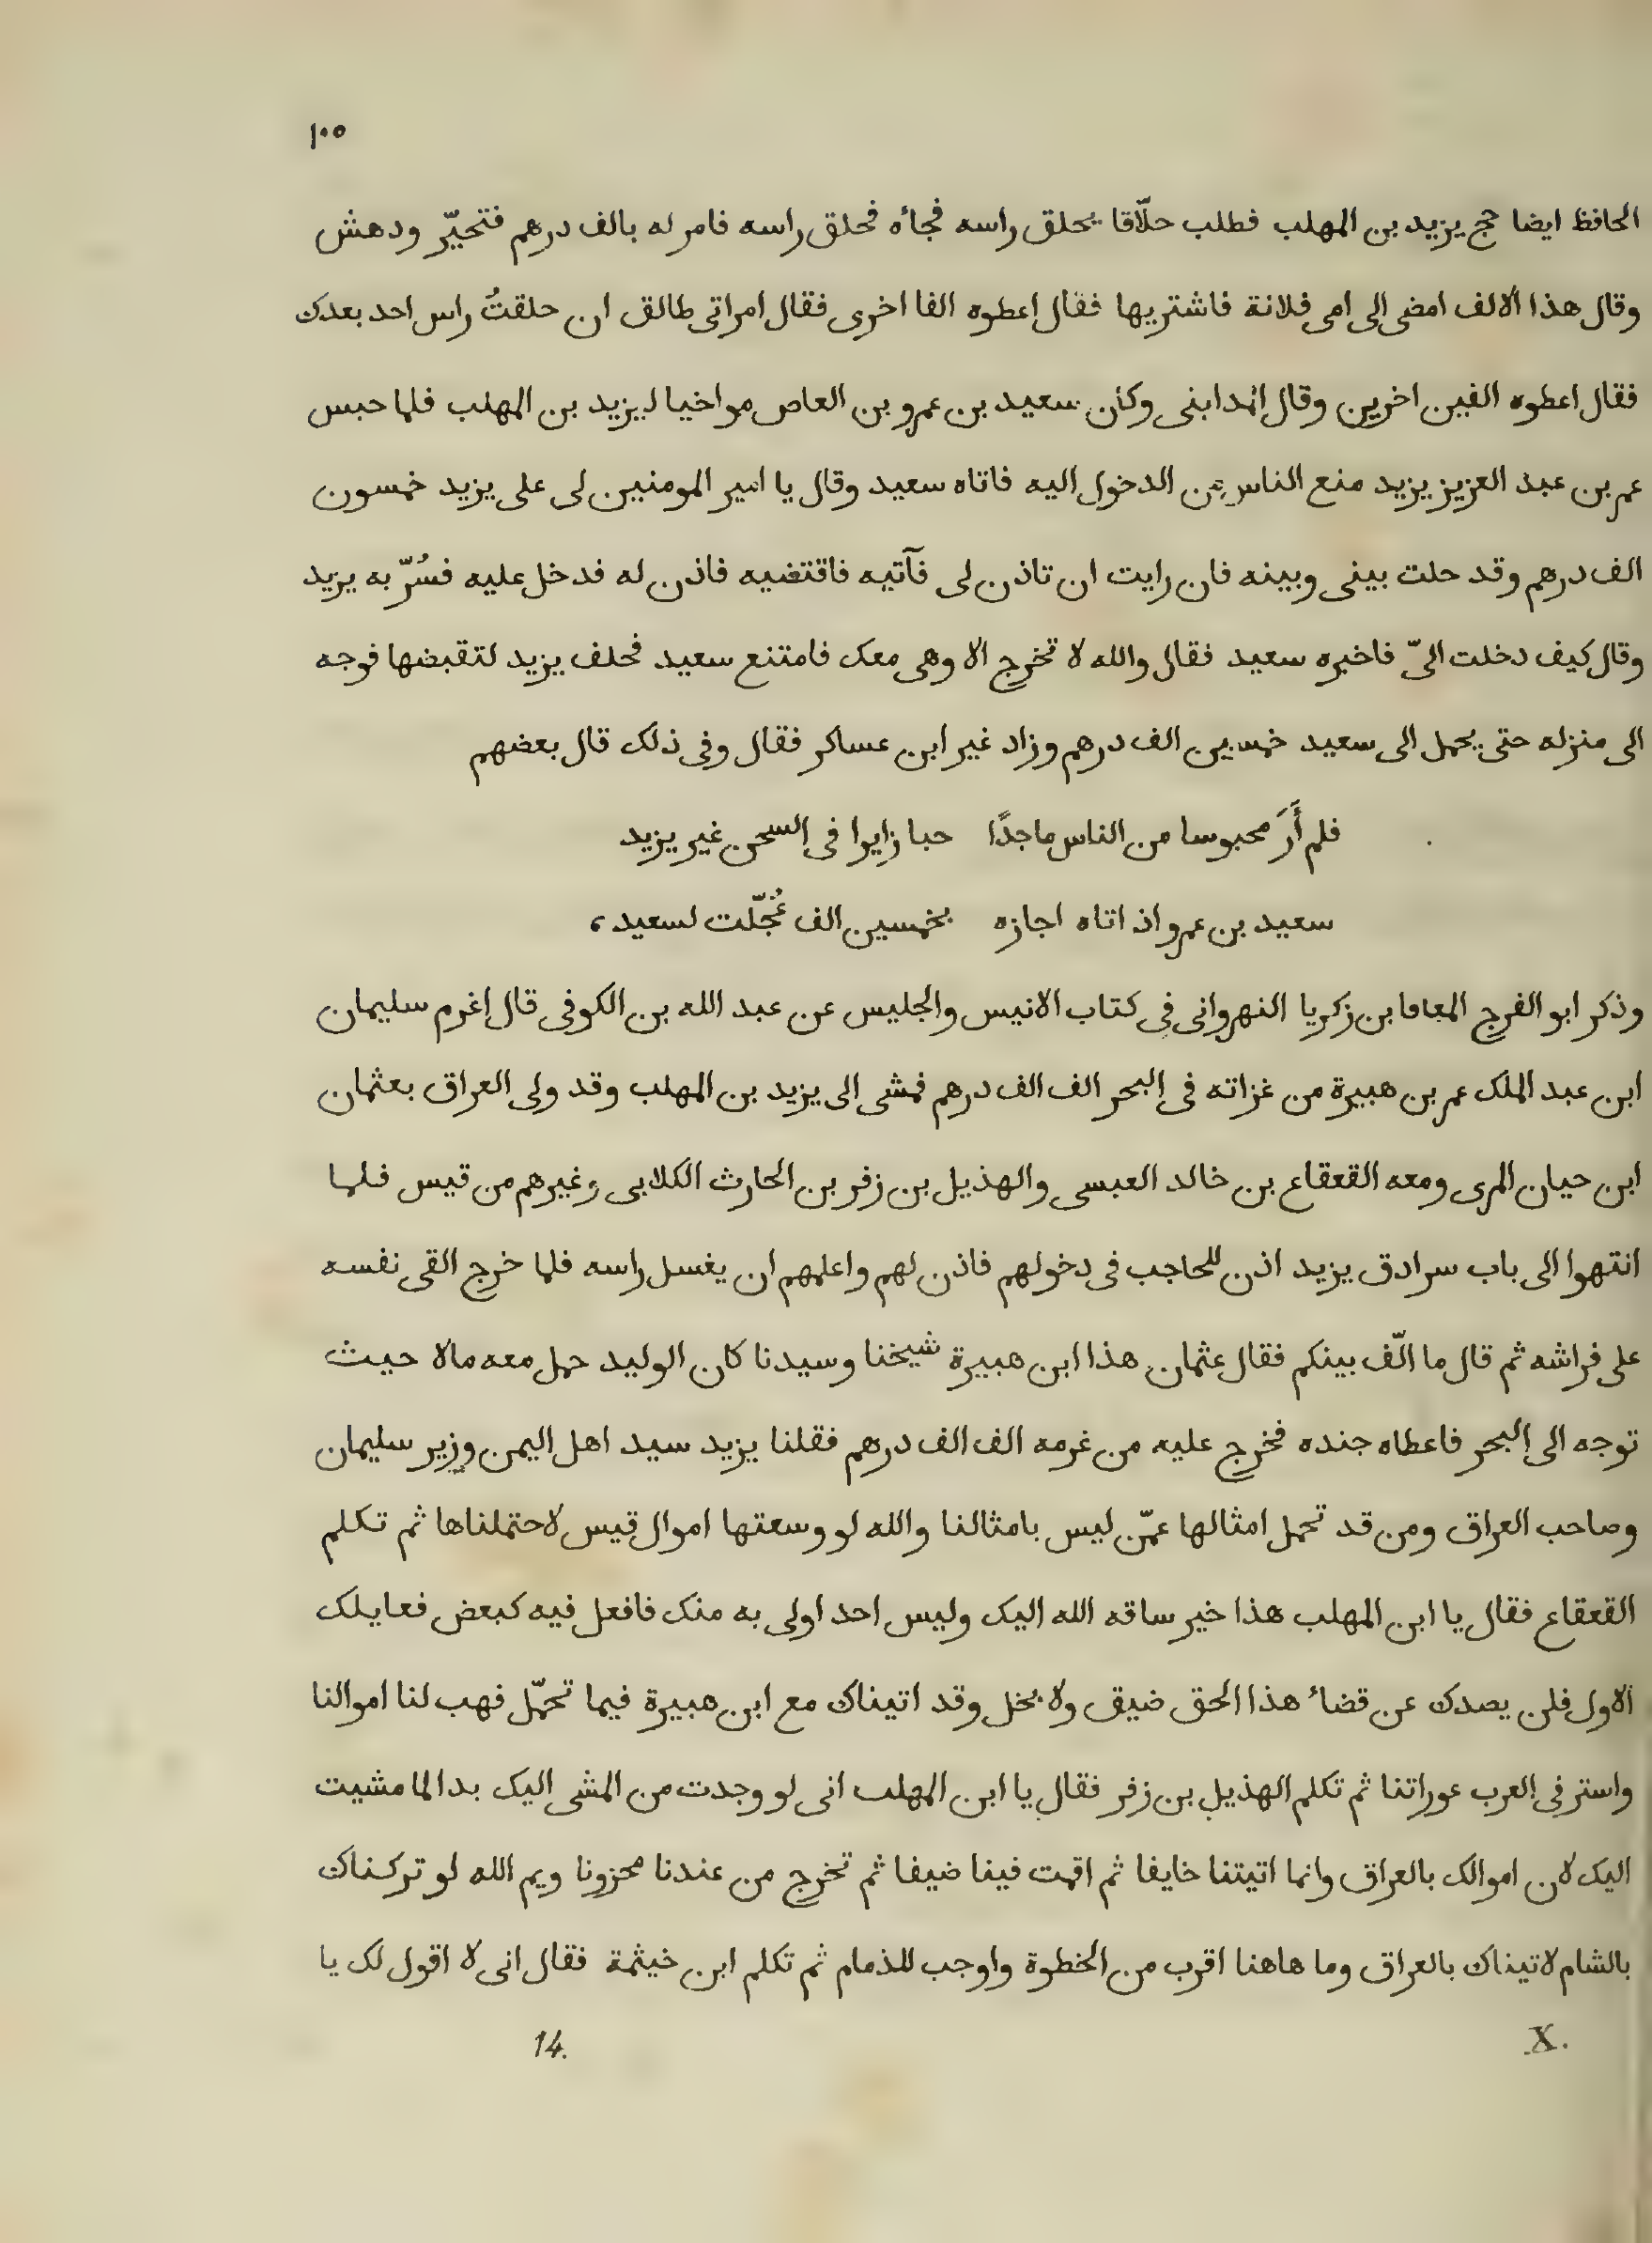 ١٠٥
الحافظ ايضا حج يزيد بن المهلب فطلب حلّاقا يحلق راسه فجأه فحلق راسه فامر له بالف درهم فتحيّر ودهش
وقال هذا الالف امضى الى امى فلانة فاشتريها فقال اعطوه الفا اخرى فقال امراتى طالق ان حلقتُ راس احد بعدك
فقال اعطوه الفين اخرين وقال المدابنى وكان سعيد بن عمرو بن العاص مواخيا ليزيد بن المهلب فلما حبس
عمر بن عبد العزيز يزيد منع الناس من الدخول اليه فاتاه سعيد وقال يا امير المومنين لى على يزيد خمسون
الف درهم وقد حلت بينى وبينه فان رايت ان تاذن لى فآتيه فاقتضيه فاذن له فدخل عليه فسُرّ به يزيد
وقال كيف دخلت الىّ فاخبره سعيد فقال والله لا تخرج الا وهى معك فامتنع سعيد فحلف يزيد لتقبضها فوجه
الى منزله حتى يحمل الى سعيد خمسين الف درهم وزاد غير ابن عساكر فقال وفى ذلك قال بعضهم
فلم أَرَ محبوسا من الناس ماجدًا حبا زايرا فى السجن غير يزيد
سعيد بن عمرو اذ اتاه اجازه بخمسين الف عُجّلت لسعيد،
وذكر ابو الفرج المعافا بن زكريا النهروانى فى كتاب الانيس والجليس عن عبد الله بن الكوفى قال اغرم سليمان
ابن عبد الملك عمر بن هبيرة من غزاته فى البحر الف الف درهم فمشى الى يزيد بن المهلب وقد ولى العراق بعثمان
ابن حيان المرى ومعه القعقاع بن خالد العبسى والهذيل بن زفر بن الحارث الكلابى وغيرهم من قيس فلما
انتهوا الى باب سرادق يزيد اذن للحاجب فى دخولهم فاذن لهم واعلمهم ان يغسل راسه فلما خرج القى نفسه
على فراشه ثم قال ما الّف بينكم فقال عثمان هذا ابن هبيرة شيخنا وسيدنا كان الوليد حمل معه مالا حيث
توجه الى البحر فاعطاه جنده فخرج عليه من غرمه الف الف درهم فقلنا يزيد سيد اهل اليمن وزير سليمان
وصاحب العراق ومن قد تحمل امثالها عمّن ليس بامثالنا والله لو وسعتها اموال قيس لاحتملناها ثم تكلم
القعقاع فقال يا ابن المهلب هذا خير ساقه الله اليك وليس احد اولى به منك فافعل فيه كبعض فعايلك
الاول فلن يصدك عن قضاء هذا الحق ضيق ولا بخل وقد اتيناك مع ابن هبيرة فيما تحمّل فهب لنا اموالنا
واستر فى العرب عوراتنا ثم تكلم الهذيل بن زفر فقال يا ابن المهلب انى لو وجدت من المشى اليك بدا لما مشيت
اليك لان اموالك بالعراق وانما اتيتنا خايفا ثم اقمت فينا ضيفا ثم تخرج من عندنا محزونا ويم الله لو تركناك
بالشام لاتيناك بالعراق وما هاهنا اقرب من الخطوة واوجب للذمام ثم تكلم ابن خيثمة فقال انى لا اقول لك يا
X. 14.